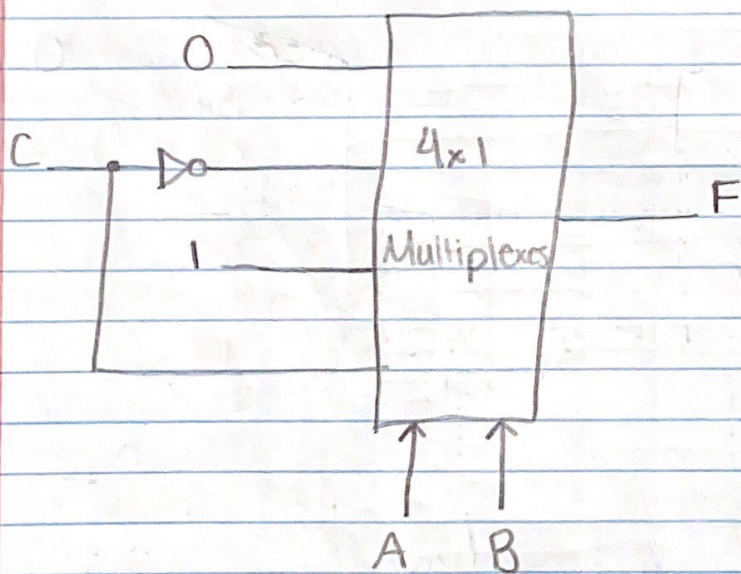 0
C
4x1
F
1
Multiplexes
A B